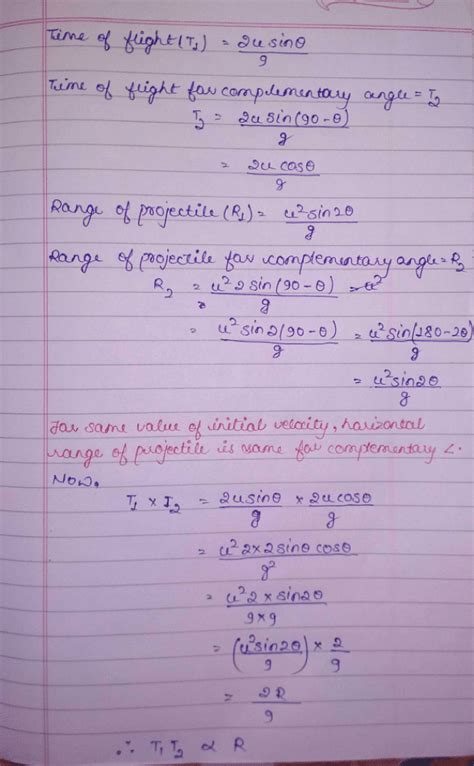 Time of flight (T₁) = 2u sinθ / g
Time of flight for complementary angle = T₂
T₂ = 2u sin(90 - θ) / g
= 2u cosθ / g
Range of projectile (R₁) = u² sin2θ / g
Range of projectile for complementary angle = R₂
R₂ = u² 2 sin(90 - θ) / g
= u² sin2(90 - θ) / g = u² sin(180 - 2θ) / g
= u² sin2θ / g
For same value of initial velocity, horizontal
range of projectile is same for complementary ∠.
Now,
T₁ × T₂ = 2u sinθ / g × 2u cosθ / g
= u² 2×2 sinθ cosθ / g²
= u² 2 × sin2θ / g×g
= (u² sin2θ / g) × 2 / g
= 2R / g
∴ T₁ T₂ ∝ R